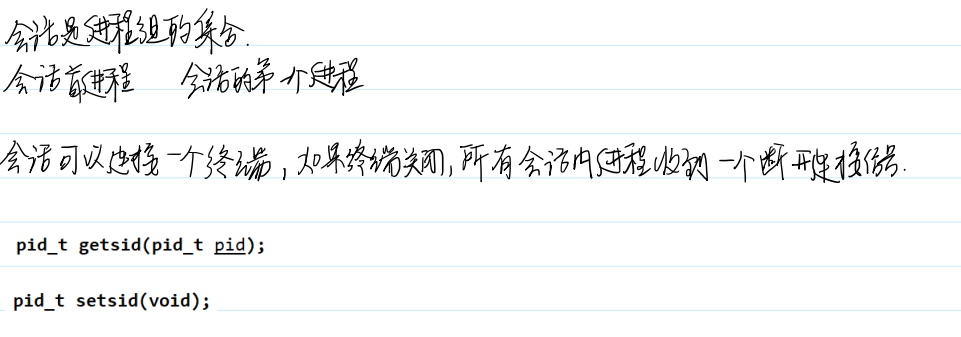 会话是进程组的集合.
会话首进程 会话的第一个进程
会话可以连接一个终端,如果终端关闭,所有会话内进程收到一个断开连接信号.
pid_t getsid(pid_t pid);
pid_t setsid(void);